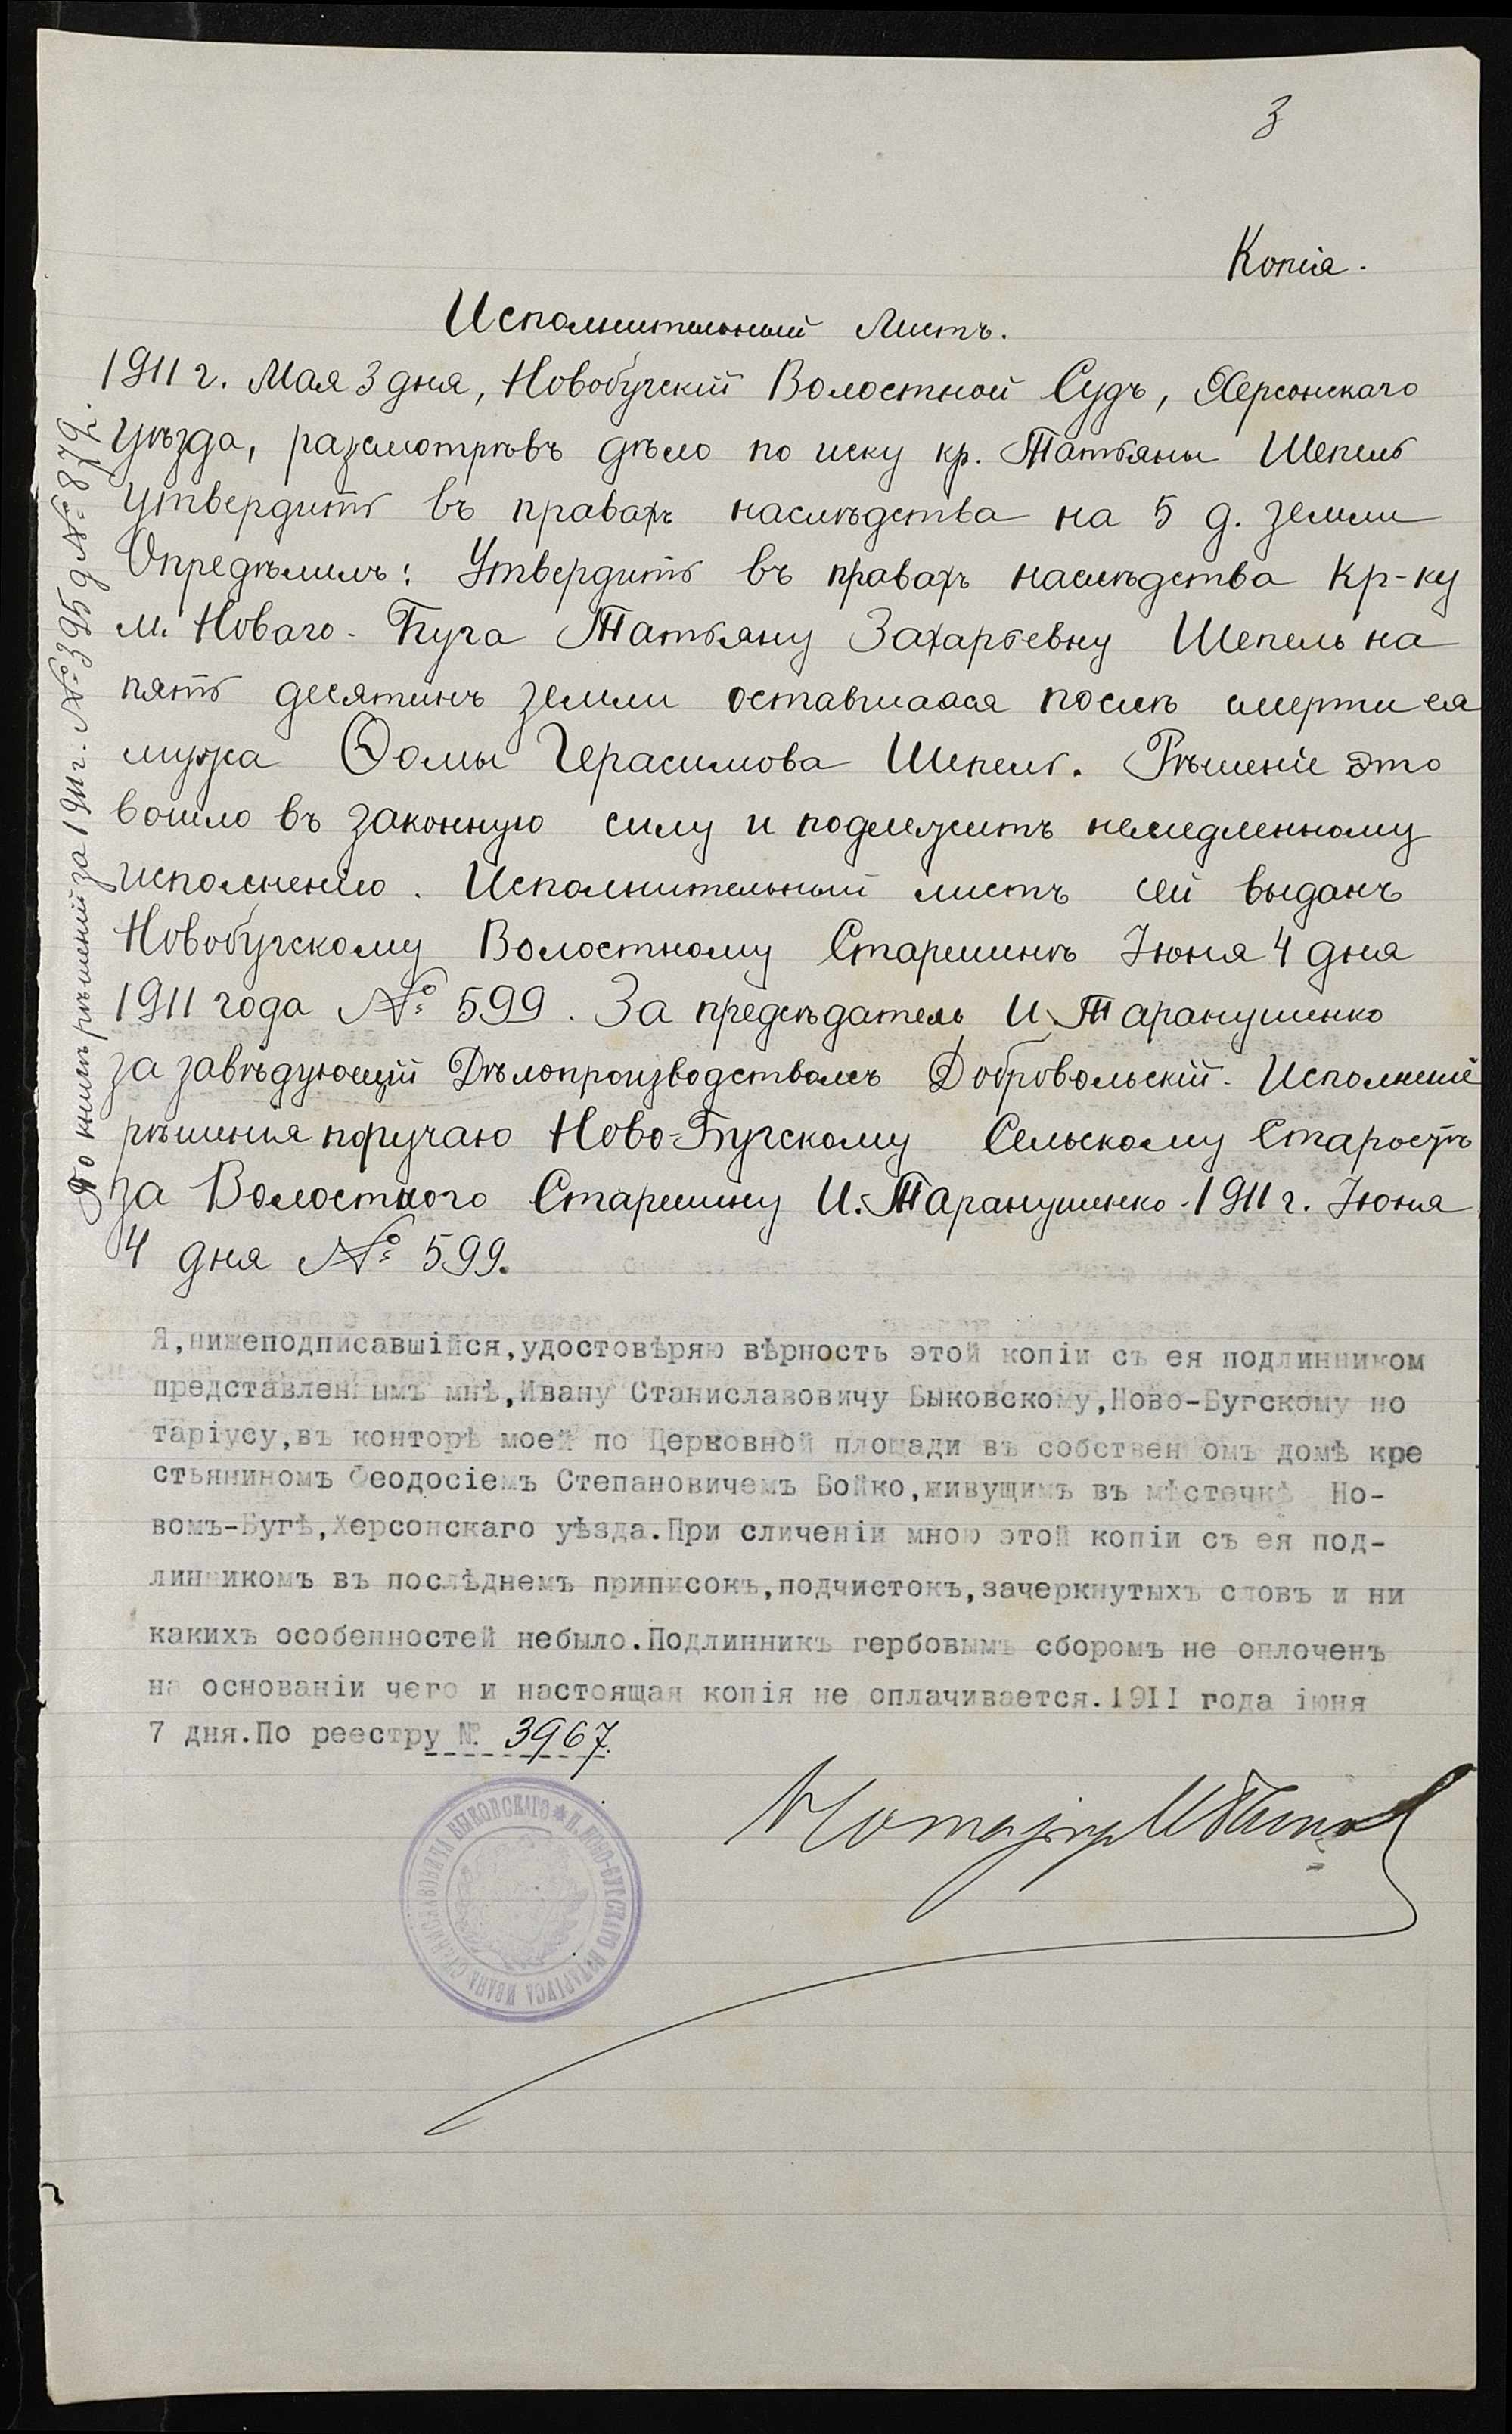 3
Копія.
Исполнительный Листъ.
1911 г. Мая 3 дня, Новобугскій Волостной Судъ, Херсонскаго
уѣзда, разсмотрѣвъ дѣло по иску кр. Татьяны Шепель
утвердить въ правахъ наслѣдства на 5 д. земли
Опредѣлилъ: Утвердить въ правахъ наслѣдства кр-ку
м. Новаго-Буга Татьяну Захарьевну Шепель на
пять десятинъ земли оставшаася послѣ смерти ея
мужа Ѳомы Герасимова Шепель. Рѣшеніе это
вошло въ законную силу и подлежитъ немедленному
исполненію. Исполнительный листъ сей выданъ
Новобугскому Волостному Старшинѣ Іюня 4 дня
1911 года № 599. За предсѣдатель И. Таранушенко
за завѣдующій Дѣлопроизводствомъ Добровольскій. Исполненіе
рѣшенія поручаю Ново-Бугскому Сельскому Старостѣ
за Волостного Старшину И. Таранушенко. 1911 г. Іюня
4 дня № 599.
По книгѣ рѣшеній за 1911 г. № 395 д № 879.
Я,нижеподписавшійся,удостовѣряю вѣрность этой копіи съ ея подлинником
представленнымъ мнѣ,Ивану Станиславовичу Быковскому,Ново-Бугскому но
таріусу,въ конторѣ моей по Церковной площади въ собственномъ домѣ кре
стьяниномъ Феодосіемъ Степановичемъ Бойко,живущимъ въ мѣстечкѣ Но-
вомъ-Бугѣ,Херсонскаго уѣзда.При сличеніи мною этой копіи съ ея под-
линникомъ въ послѣднемъ приписокъ,подчистокъ,зачеркнутыхъ словъ и ни
какихъ особенностей небыло.Подлинникъ гербовымъ сборомъ не оплоченъ
на основаніи чего и настоящая копія не оплачивается.1911 года іюня
7 дня.По реестру № 3967.
Нотаріус И Быков
* П. НОВО-БУГСКАГО НОТАРІУСА ИВАНА СТАНИСЛАВОВИЧА БЫКОВСКАГО